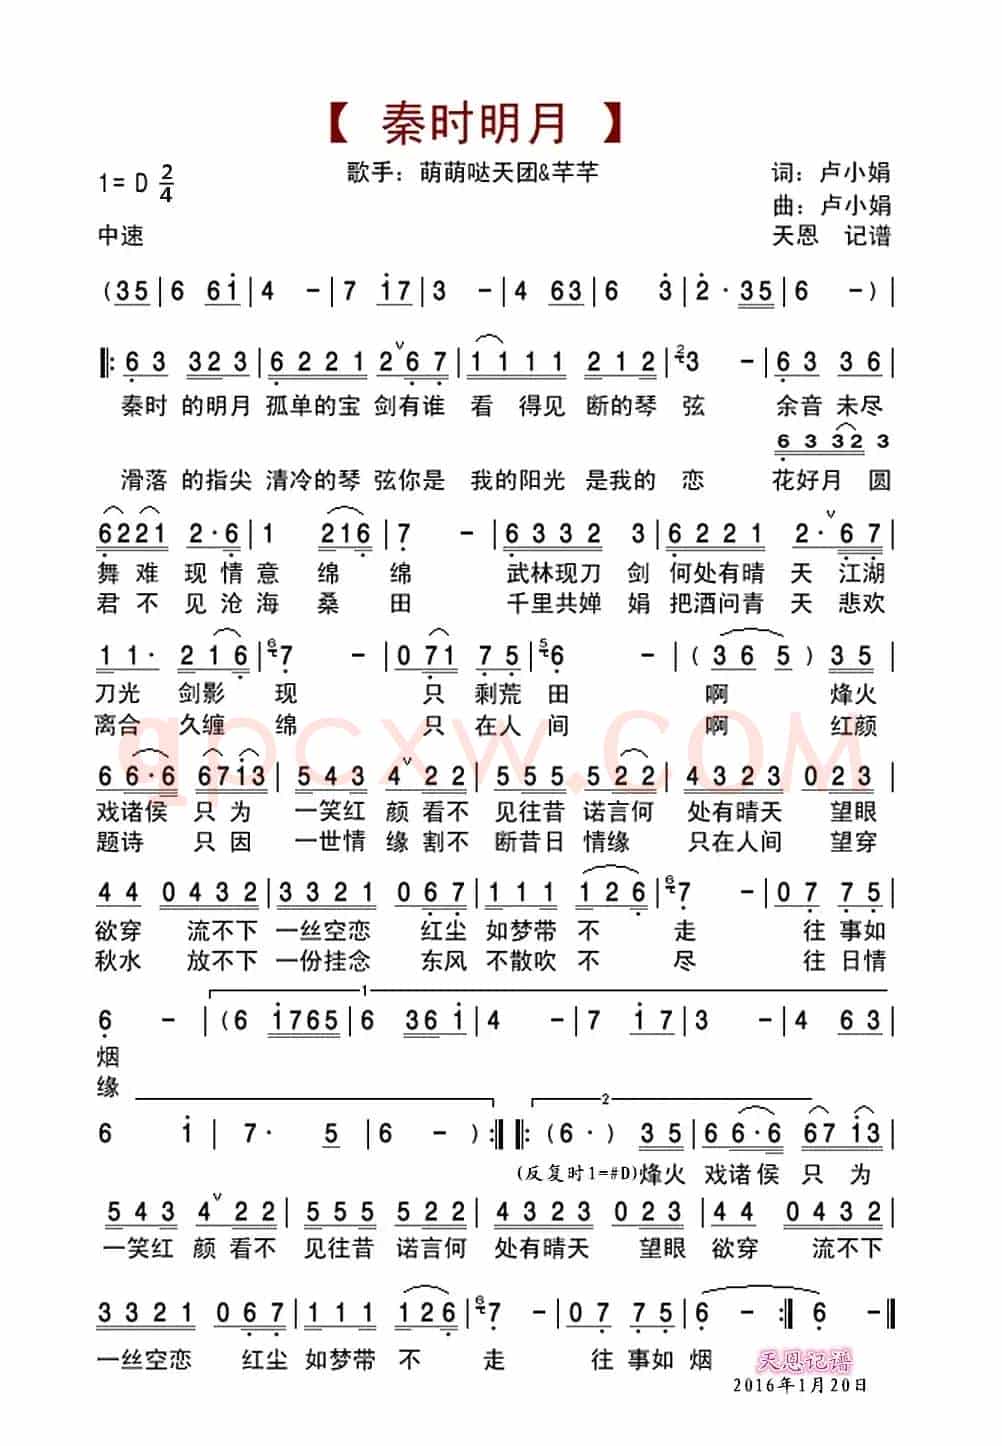 【 秦时明月 】
1= D 2/4
歌手：萌萌哒天团&芊芊
词：卢小娟
曲：卢小娟
中速
天恩 记谱
(35 | 6 6i | 4 - | 7 i7 | 3 - | 4 63 | 6 3 | 2·35 | 6 - ) |
|: 63 323 | 6221 267 | 1111 212 | 23 - | 63 36 |
秦时 的明月 孤单的宝 剑有谁 看 得见 断的琴 弦 余音 未尽
63 332 3
滑落 的指尖 清冷的琴 弦你是 我的阳光 是我的 恋 花好月 圆
6221 2·6 | 1 216 | 7 - | 6332 3 | 6221 2·67 |
舞难 现情意 绵 绵 武林现刀 剑 何处有晴 天 江湖
君不 见沧海 桑 田 千里共婵 娟 把酒问青 天 悲欢
11· 216 | 67 - | 071 75 | 56 - | (365) 35 |
刀光 剑影 现 只 剩荒 田 啊 烽火
离合 久缠 绵 只 在人 间 啊 红颜
qpcxw.COM
66·6 67i3 | 543 422 | 555 522 | 4323 023 |
戏诸侯 只为 一笑红 颜看不 见往昔 诺言何 处有晴天 望眼
题诗 只因 一世情 缘割不 断昔日 情缘 只在人间 望穿
44 0432 | 3321 067 | 111 126 | 67 - | 07 75 |
欲穿 流不下 一丝空恋 红尘 如梦带 不 走 往 事如
秋水 放不下 一份挂念 东风 不散吹 不 尽 往 日情
1
6 - | (6 i765 | 6 36i | 4 - | 7 i7 | 3 - | 4 63 |
烟
缘
2
6 i | 7· 5 | 6 - ) :| |: (6·) 35 | 66·6 67i3 |
(反复时1=#D)烽火 戏诸侯 只 为
543 422 | 555 522 | 4323 023 | 44 0432 |
一笑红 颜看不 见往昔 诺言何 处有晴天 望眼 欲穿 流不下
3321 067 | 111 126 | 67 - | 07 75 | 6 - :| 6 - ‖
一丝空恋 红尘 如梦带 不 走 往 事如 烟
天恩记谱
2016年1月20日